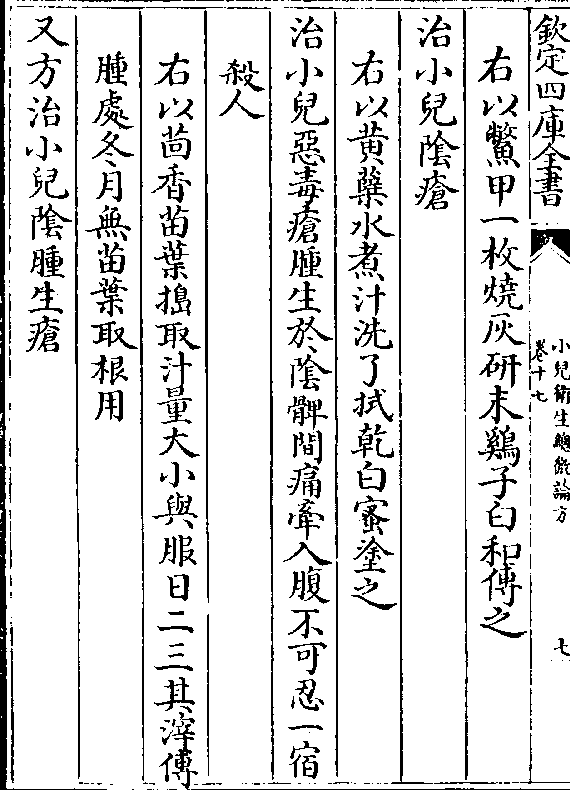 欽定四庫全書
小兒衛生總微論方
卷十七
七
右以鱉甲一枚燒灰研末鷄子白和傅之
治小兒陰瘡
右以黄蘗水煮汁洗了拭乾白蜜塗之
治小兒惡毒瘡腫生於陰髀間痛牽入腹不可忍一宿
殺人
右以茴香苗葉搗取汁量大小與服日二三其滓傅
腫處冬月無苗葉取根用
又方治小兒陰腫生瘡